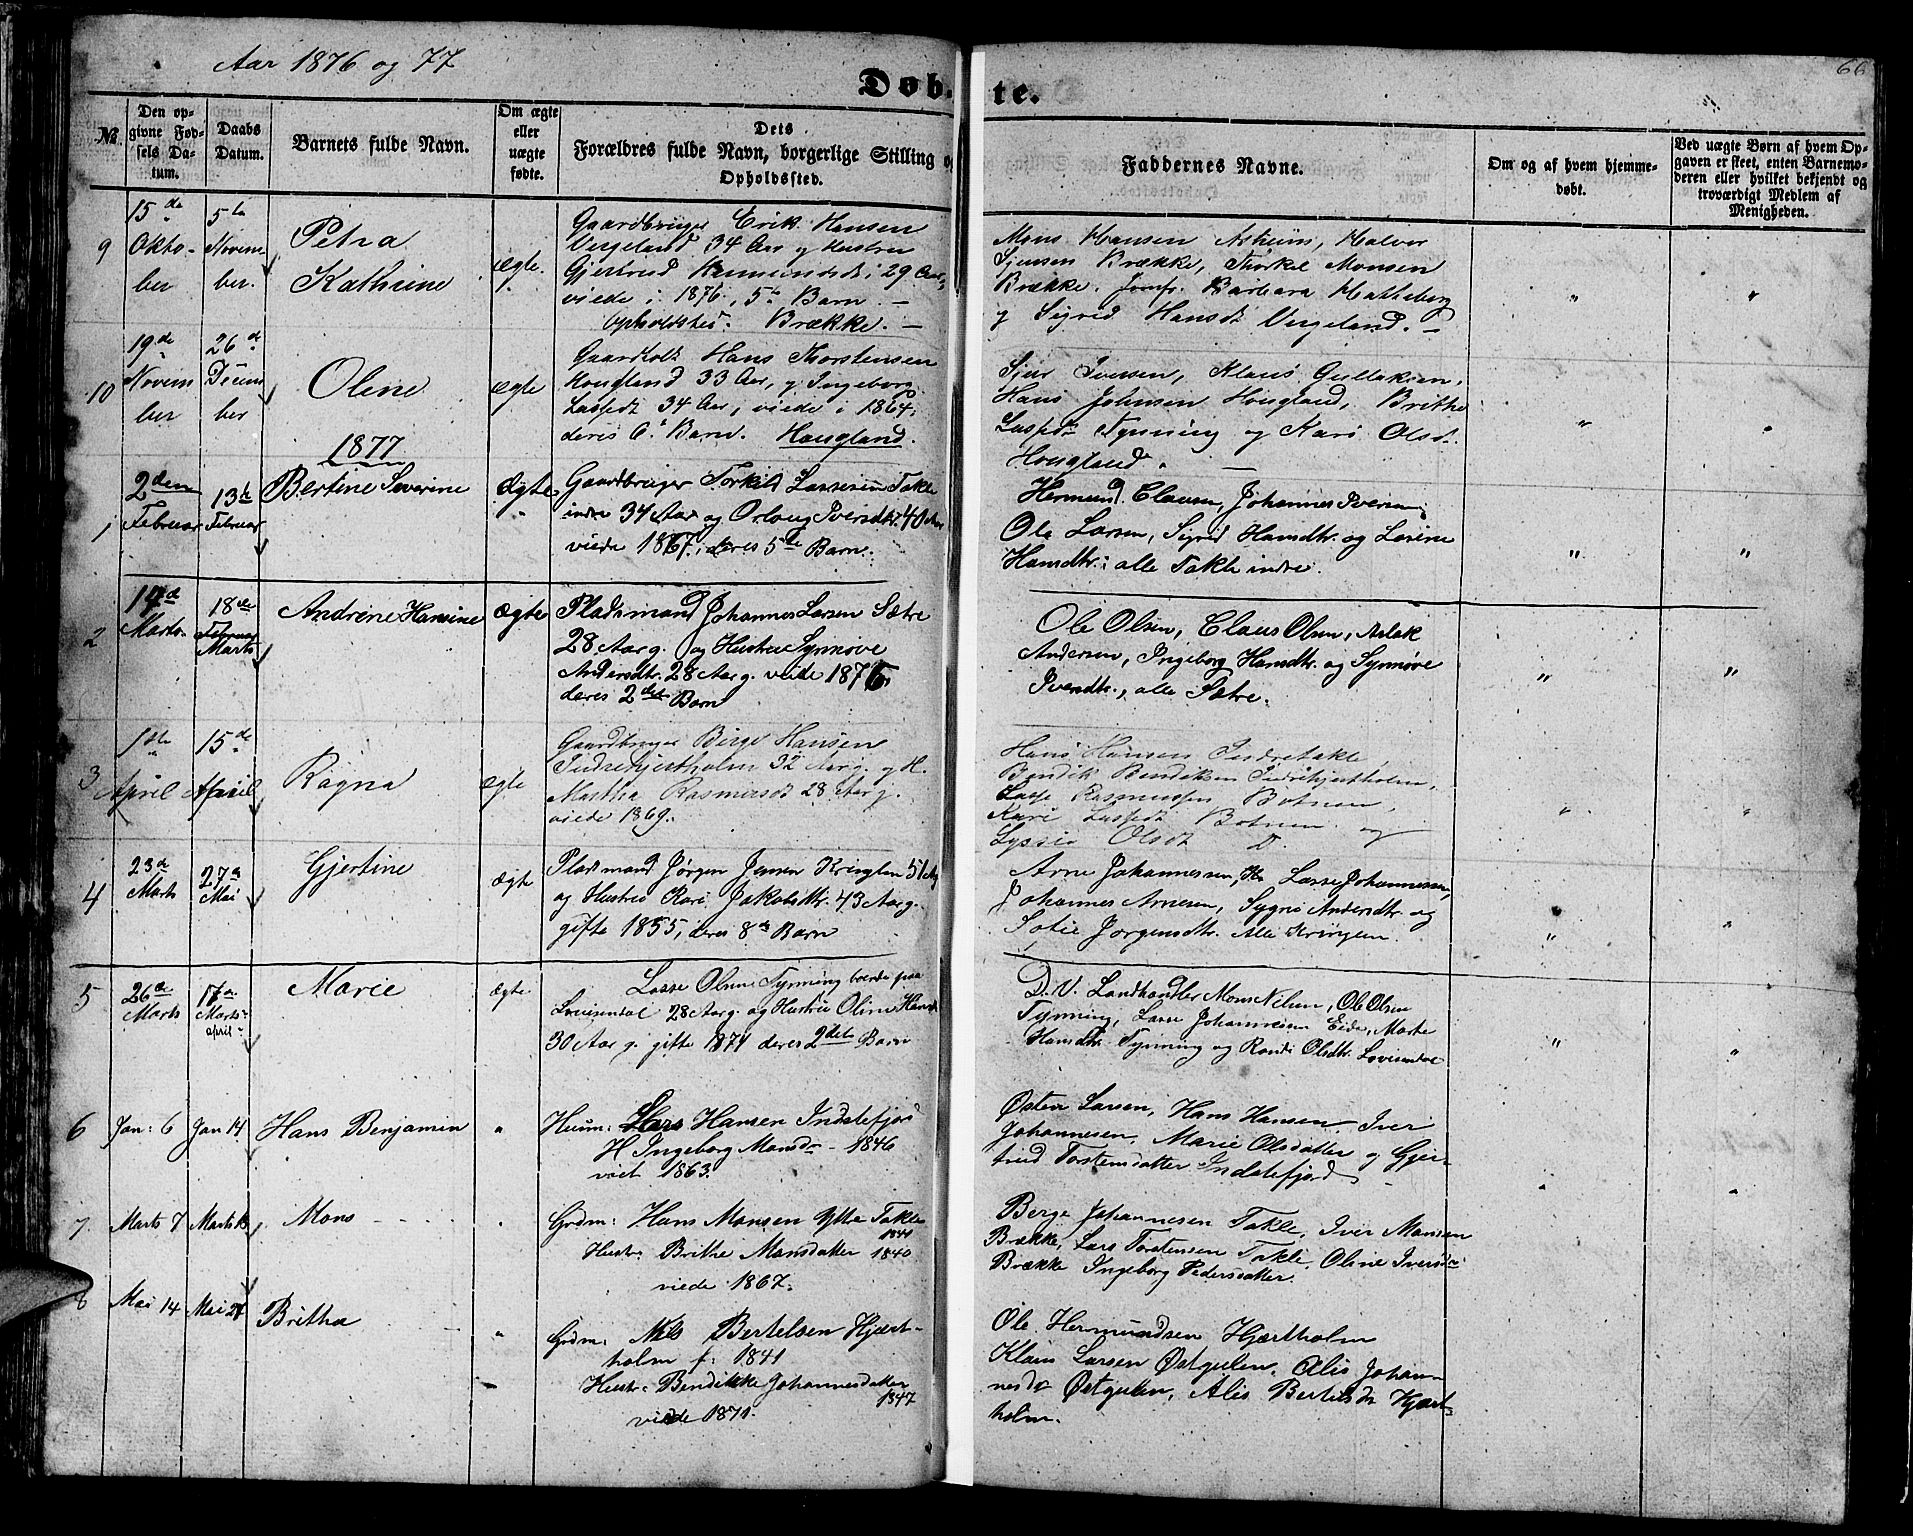 Aar 1876 og 77
66
Døbte.
№
Den opgivne Fødsels Datum.
Daabs Datum.
Barnets fulde Navn.
Om ægte eller uægte fødte.
Dets
Forældres fulde Navn, borgerlige Stilling og
Opholdssted.
Faddernes Navne.
Om og af hvem hjemmedøbt.
Ved uægte Børn af hvem Opgaven er skeet, enten Barnemoderen eller hvilket bekjendt og troværdigt Medlem af Menigheden.
9
15de Oktober
5te November.
Petra
Kathrine
ægte.
Gaardbruger Erik Hansen
Vergeland 34 Aar og Hustru
Gjertrud 29 Aar,
viede i 1876, 5te Barn. —
Opholdsted. Brække. —
Mons Hansen Askeim, Halvor
Brække, Thorkel Monsen
Brække. Jomfr. Barbara Hatteberg
og Sigrid Hansdt Vergeland. —
10
19de November
26de Desember
Oline
ægte
Hans Thorstensen
Hougland 33 Aar, og Ingeborg
Lassedt 34 Aar, viede i 1864,
deres 6te Barn. Hougland.
Sjur Iversen, Klaus Gullaksen,
Hans Johnsen Hougland, Brithe
Lassedt Tynning og Kari Olsdt
Hougland. —
1877
1
2den Februar
13de Februar
Bertine Severine
ægte
Gaardbruger Torkild Lassesen Takle
indre 34 Aar og Iversdtr. 40 Aar
viede 1867, deres 5te Barn.
Hermund Clausen, Johannes Iversen,
Ole Larsen, Sigrid Hansdtr. og Lovine
Hansdtr: alle Takle indre.
2
14de Marts
18de Februar Marts
Andrine Hansine
ægte
Pladsmand Johannes Larsen Sætre
28 Aar g. og Hustru Synnøve
Andersdtr. 28 Aar g. viede 1876
deres 2det Barn
Ole Olsen, Claus Olsen, Aslak
Andersen, Ingeborg Hansdtr. og Synnøve
Iversdtr., alle Sætre.
3
1ste April
15de April
Ragna
ægte
Gaardbruger Børge Hansen
Indrehjertholm 32 Aar g. og H.
Martha Rasmusdt 28 Aar g.
viede 1869.
Hans Hansen Indretakle,
Bendik Bendiksen Indrehjertholm,
Lasse Rasmussen Botnen,
Kari Lassedt Botnen og
Olsdt D.
4
23de Marts
27de Mai
Gjertine
ægte
Pladsmand Jørgen Jensen Kringlen 51 Ag
og Hustru Kari Jakobsdtr. 43 Aar g.
gifte 1855, deres 8de Barn
Arne Johannessen, Lasse Johannessen,
Johannes Arnesen, Sygni Andersdtr. og
Sofie Jørgensdtr. Alle Kringlen.
5
26de Marts
17de Marts april
Marie
ægte
Lasse Olsen Tynning boende paa
Lovisendal 28 Aar g. og Hustru Oline Hansdtr
30 Aar g. gifte 1871 deres 2det Barn
D. V. Landhandler Mons Nilsen, Ole Olsen
Tynning, Lasse Johannesen Eide, Marte
Hansdtr Tynning og Randi Olsdtr. Lovisendal
6
Jan: 6
Jan 14
Hans Benjamin
Huusm: Lars Hansen Indstefjord
H Ingeborg Monsdr - 1846
viet 1863.
Østen Larsen, Hans Hansen, Iver
Johannesen, Marie Olsdatter og Gjertrud Torstensdatter Indstefjord.
7.
Marts 7
Marts 18
Mons
Grdm: Hans Monsen Ytre Takle 1841
Hustr: Brithe Monsdatter 1840
viede 1867.
Berge Johannesen Takle, Iver Monsen
Brække, Lars Torstensen Takle, Oline Iversdr
Brække Ingeborg Pedersdatter.
8
Mai 14
Mai 27
Britha
Grdm: Nils Bertelsen Hjærtholm f: 1841
Hustr: Bendikke Johannesdatter 1847
viede 1871.
Ole Hermundsen Hjærtholm
Klaus Larsen Østgulen, Alis Johannesdr Østgulen, Alis Bertelsdr Hjærtholm.